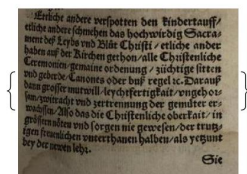 Etliche andere verspotten den Kindertauff/
etliche andere schmehen das hochwirdig Sacra-
ment des Leybs vnd Blůt Christi / etliche ander
haben auß der Kirchen gethon/alle Christenliche
Ceremonien/gmaine ordenung / züchtige sitten
vnd geberde/Canones oder buß regel ꝛc. Darauß
dann grosser mutwill/leychtfertigkait/vngehor-
sam/zwitracht vnd zertrennung der gemüter er-
wachsen/Also das die Christenliche oberkait/in
grössern nöten vnd sorgen nie gewesen/der trutz-
igen freuenlichen vnterthanen halben/als yetzunt
bey der newen lehr.
Sie